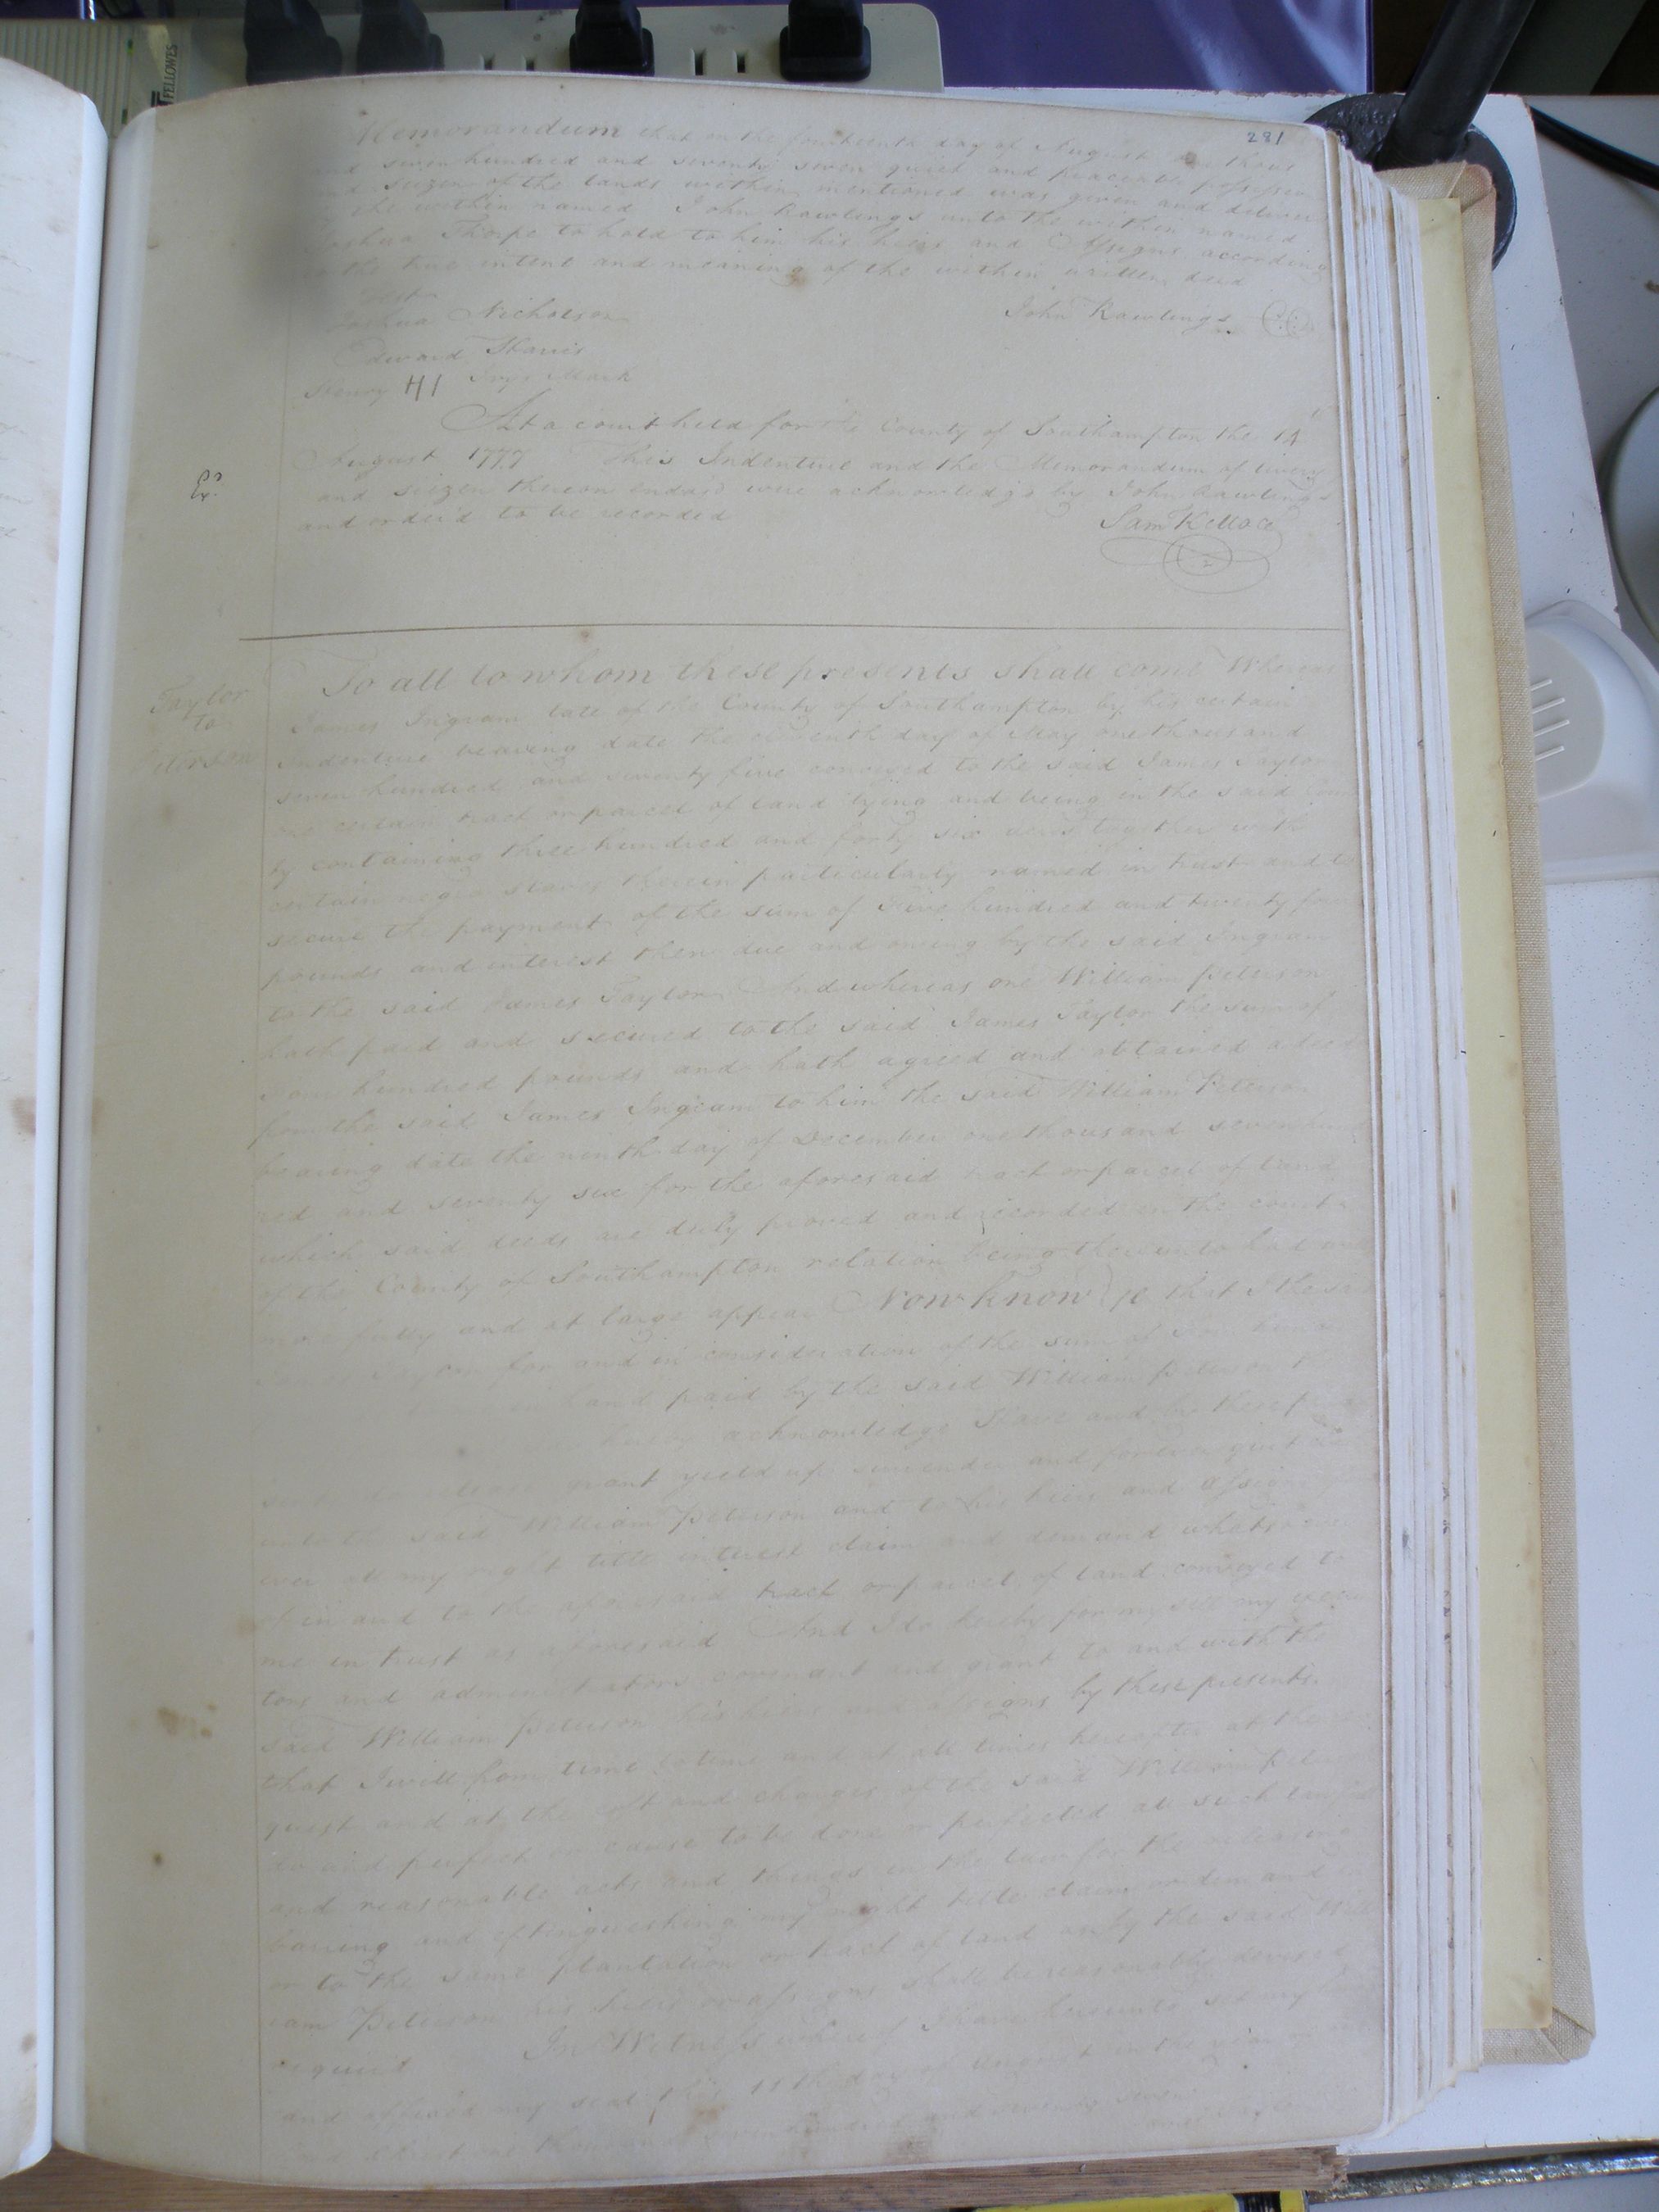 FELLOWES
281
Memorandum that on the fourteenth day of August one thous
and seven hundred and seventy seven quiet and peaceable possession
and seizen of the lands within mentioned was given and deliver
the within named John Rawlings unto the within named
Joshua Thorpe to hold to him his heirs and Assigns according
to the true intent and meaning of the within written deed
Test
Joshua Nicholson
John Rawlings
Edward Harris
Henry HI Ivy's Mark
At a court held for the County of Southampton the 14
August 1777 This Indenture and the Memorandum of livery
Ex.
and seizen thereon endors'd were acknowledg'd by John Rawlings
and order'd to be recorded
Sam Kello CC
Taylor
to
Peterson
To all to whom these presents shall come Whereas
James Ingram late of the County of Southampton by his certain
Indenture bearing date the eleventh day of May one thousand
seven hundred and seventy five conveyed to the said James Taylor
one certain tract or parcel of land lying and being in the said Coun
ty containing three hundred and forty six acres together with
certain negro slaves therein particularly named in trust and to
secure the payment of the sum of Five hundred and twenty four
pounds and interest then due and owing by the said Ingram
to the said James Taylor And whereas one William Peterson
hath paid and secured to the said James Taylor the sum of
Four hundred pounds and hath agreed and obtained a deed
from the said James Ingram to him the said William Peterson
bearing date the ninth day of December one thousand seven hund
red and seventy six for the aforesaid tract or parcel of land
which said deeds are duly proved and recorded in the court
of the County of Southampton relation being thereunto had will
more fully and at large appear Now know ye that I the said
for and in consideration of the sum of Four hund
in hand paid by the said William Peterson
hereby acknowledge Have and by these presents
do release grant yield up surrender and forever quit claim
unto the said William Peterson and to his heirs and assigns
ever all my right title interest claim and demand whatsoever
in and to the aforesaid tract or parcel of land conveyed to
me in trust as aforesaid And I do hereby for myself my execu
tors and administrators covenant and grant to and with the
said William Peterson his heirs and assigns by these presents
that I will from time to time and at all times hereafter at the re
quest and at the cost and charges of the said William Peterson
do and perfect or cause to be done or perfected all such lawful
and reasonable acts and things in the law for the releasing
barring and extinguishing my right title claim or demand in
or to the same plantation or tract of land as by the said Will
iam Peterson his heirs or assigns shall be reasonably devised
requir'd In Witness whereof I have hereunto set my hand
and affixed my seal this 11th day of August in the year of our
Lord Christ one thousand seven hundred and seventy seven